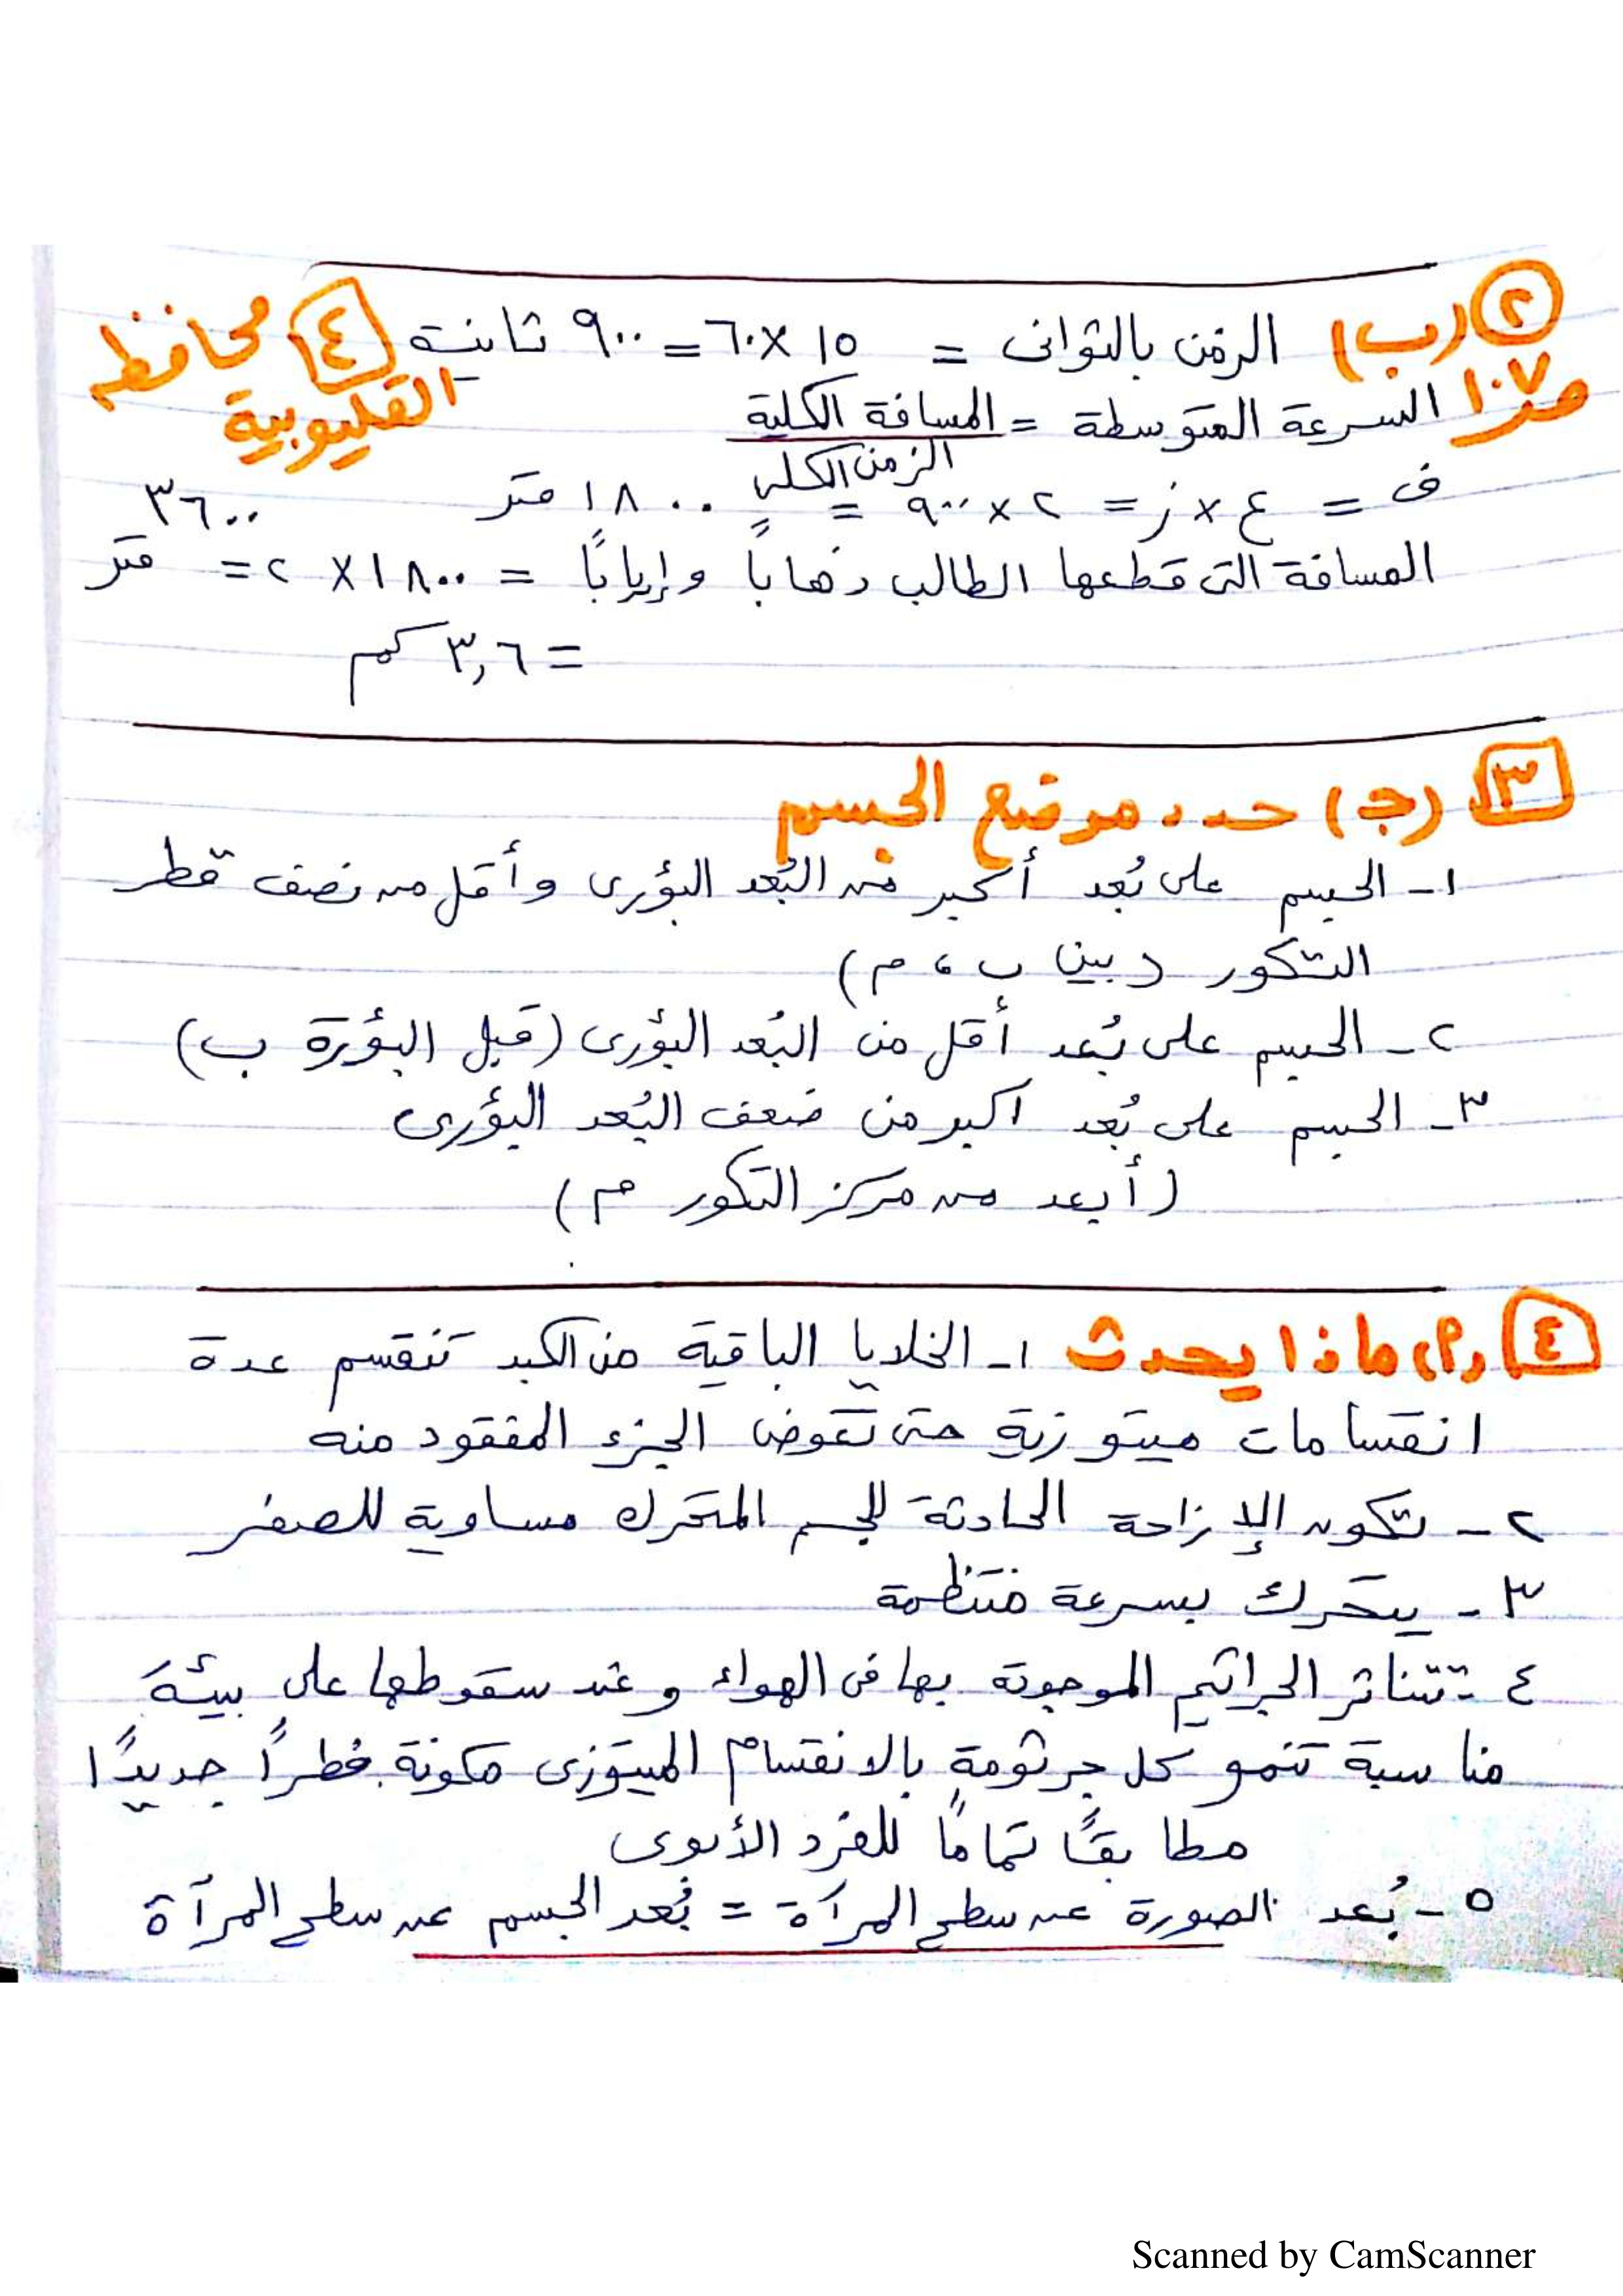 ② (ب) الزمن بالثوانى = ١٥ × ٦٠ = ٩٠٠ ثانية ٤ محافظة القليوبية
ص ١٠٧ السرعة المتوسطة = المسافة الكلية
الزمن الكلى
ف = ع × ز = ٢ × ٩٠٠ = ١٨٠٠ متر
المسافة التى قطعها الطالب ذهاباً وإياباً = ١٨٠٠ × ٢ = ٣٦٠٠ متر
= ٣,٦ كم
٣ (جـ) حدد موضع الجسم
١- الجسم على بُعد أكبر من البُعد البؤرى وأقل من نصف قطر
التكور (بين ب ، م)
٢- الجسم على بُعد أقل من البُعد البؤرى (قبل البؤرة ب)
٣- الجسم على بُعد اكبر من ضعف البُعد البؤرى
(أبعد من مركز التكور م)
٤ (م) ماذا يحدث ١- الخلايا الباقية من الكبد تنقسم عدة
انقسامات ميتوزية حتى تعوض الجزء المفقود منه
٢- تكون الإزاحة الحادثة للجسم المتحرك مساوية للصفر
٣- يتحرك بسرعة منتظمة
٤- تتناثر الجراثيم الموجودة بها فى الهواء وعند سقوطها على بيئة
مناسبة تنمو كل جرثومة بالانقسام الميتوزى مكونة فطراً جديدًا
مطابقًا تمامًا للفرد الأبوى
٥- بُعد الصورة عن سطح المرآة = بُعد الجسم عن سطح المرآة
Scanned by CamScanner